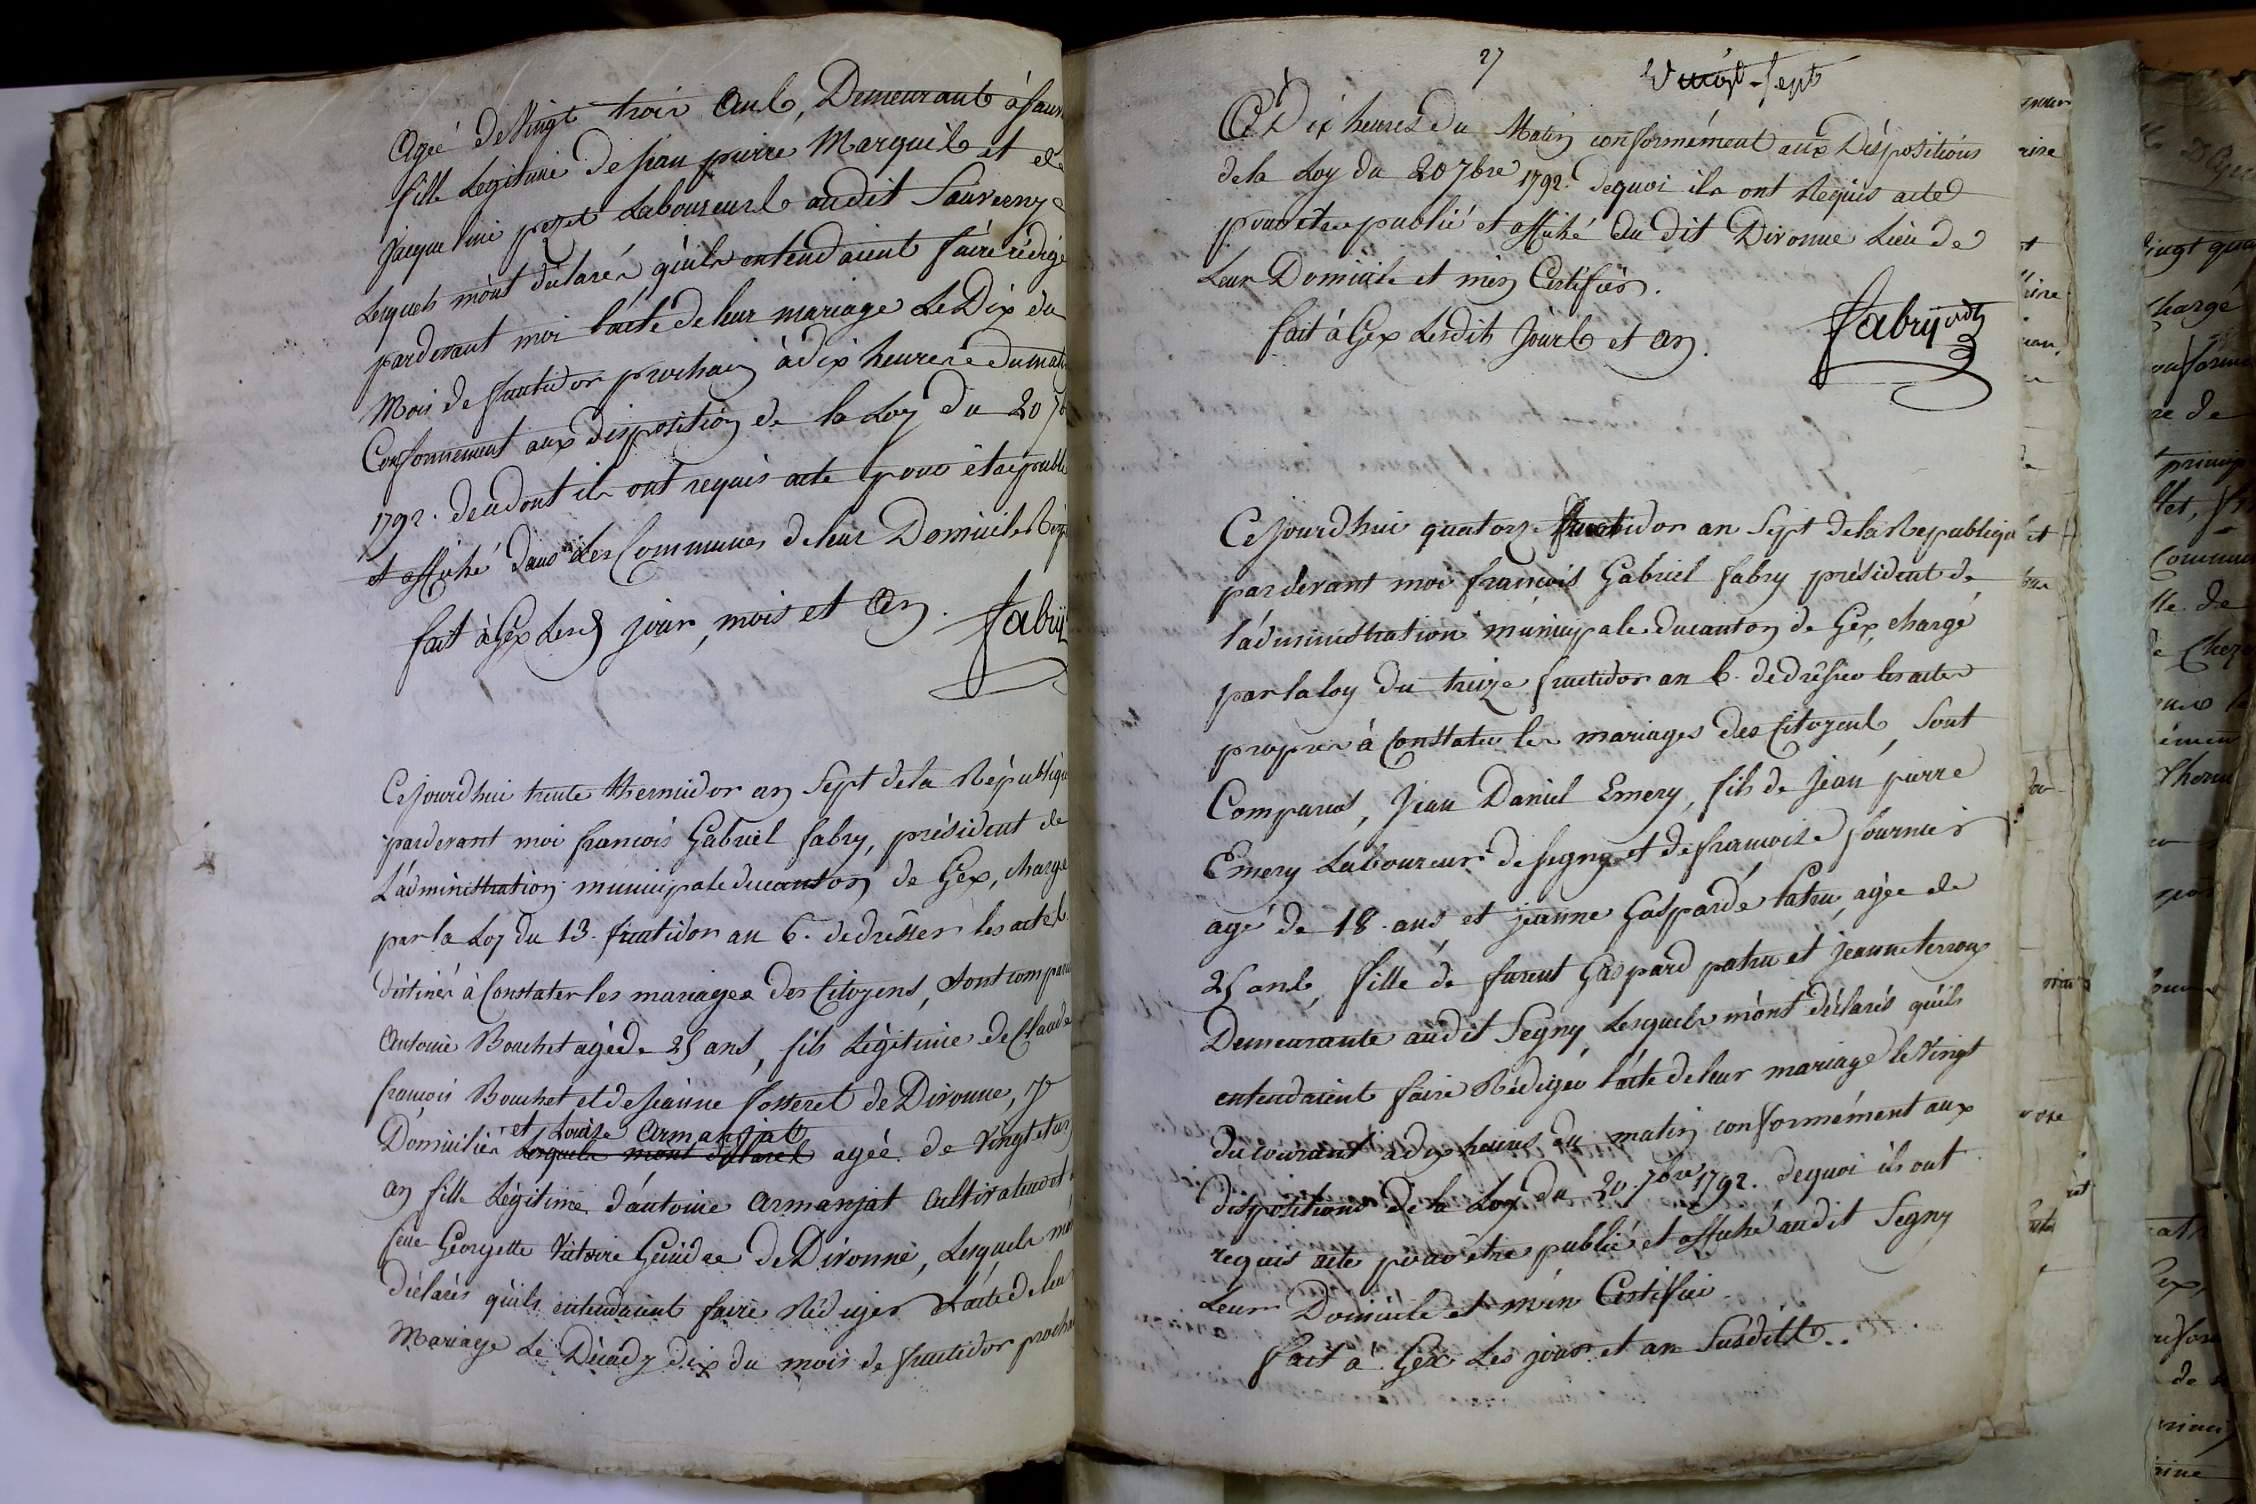 agée de Vingt trois ans, Demeurant à Sauv
fille Legitime de Jean pierre Marquis et de
Jacqueline Laboureurs audit Sauverny
Lesquels mònt déclarés qùils entendaient faire rédige
pardevant moi l'acte de leur mariage Le Dix du
Mois de fructidor prochain à dix heures du mat
Conformement aux disposition de la Loy du 20 7b
1792. dont ils ont requis acte pour être publ
et affiché dans Les Communes de leur Domicile
fait à Gex Lesd jour, mois et an. fabry
Cejourdhui trente thermidor an Sept de la Républiqu
pardevant moi francois Gabriel fabry, président de
L'administration municipale ducanton de Gex, chargé
par la Loy du 13. fructidor an 6. de dresser les actes
déstinés à Constater les mariages des Citoyens, Sont comparu
Antoine Bouchet agé de 25 ans, fils Légitime de Claude
françois Bouchet et de Jeanne fosseret de Divonne, y
et Louise armanjat
Domiciliés Lesquels mont déclarés agée de Vingt et un
an fille Légitime d'antoine armanjat Cultivateur et
feue Georgette Victoire Guidre de Divonne, Lesquels m
déclarés qùils entendaient faire Rédiger L'acte de leur
Mariage Le Décady dix du mois de fructidor procha
27 Vingt-Sept
à Dix heures du Matin conformément aux Dispositions
de la Loy du 20 7bre 1792. dequoi ils ont Requis acte
pour être publié et affiché au dit Divonne Lieu de
Leur Domicile et m'en Certifier.
fait à Gex Lesdits Jours et an. fabry
Cejourdhui quatorze fructidor an Sept de la Republiqu
pardevant moi françois Gabriel fabry président de
l'administration municipale ducanton de Gex, chargé
par la loy du treize fructidor an 6. de dresser les actes
propres à Constater les mariages des Citoyens, Sont
Comparus, Jean Daniel Emery, fils de Jean pierre
Emery Laboureur de Segny et de francoise fournier
agé de 18. ans et jeanne Gasparde Patru, agée de
25 ans, fille de furent Gaspard patru et jeanne terroux
Demeurante audit Segny, Lesquels mònt déclarés qùils
entendaient faire Rédiger l'acte de leur mariage le Vingt
du courant à dix heures du matin conformément aux
dispositions de la Loy du 20. 7bre 1792. dequoi ils ont
requis acte pour être publié et affiché audit Segny
Leur Domicile et m'en Certifié.
fait à Gex Les jour et an Susditt..